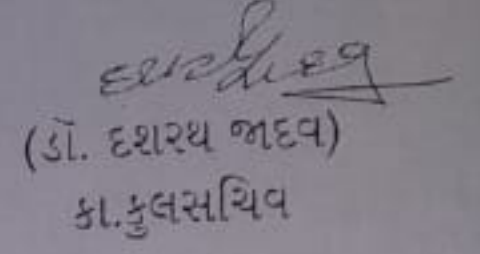 (ડૉ. દશરથ જાદવ)
કા.કુલસચિવ